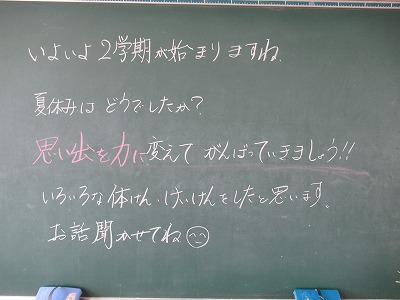 いよいよ2学期が始まりますね。
夏休みは どうでしたか?
思い出を力に変えて がんばっていきましょう!!
いろいろな体けん、けいけんをしたと思います。
お話聞かせてね